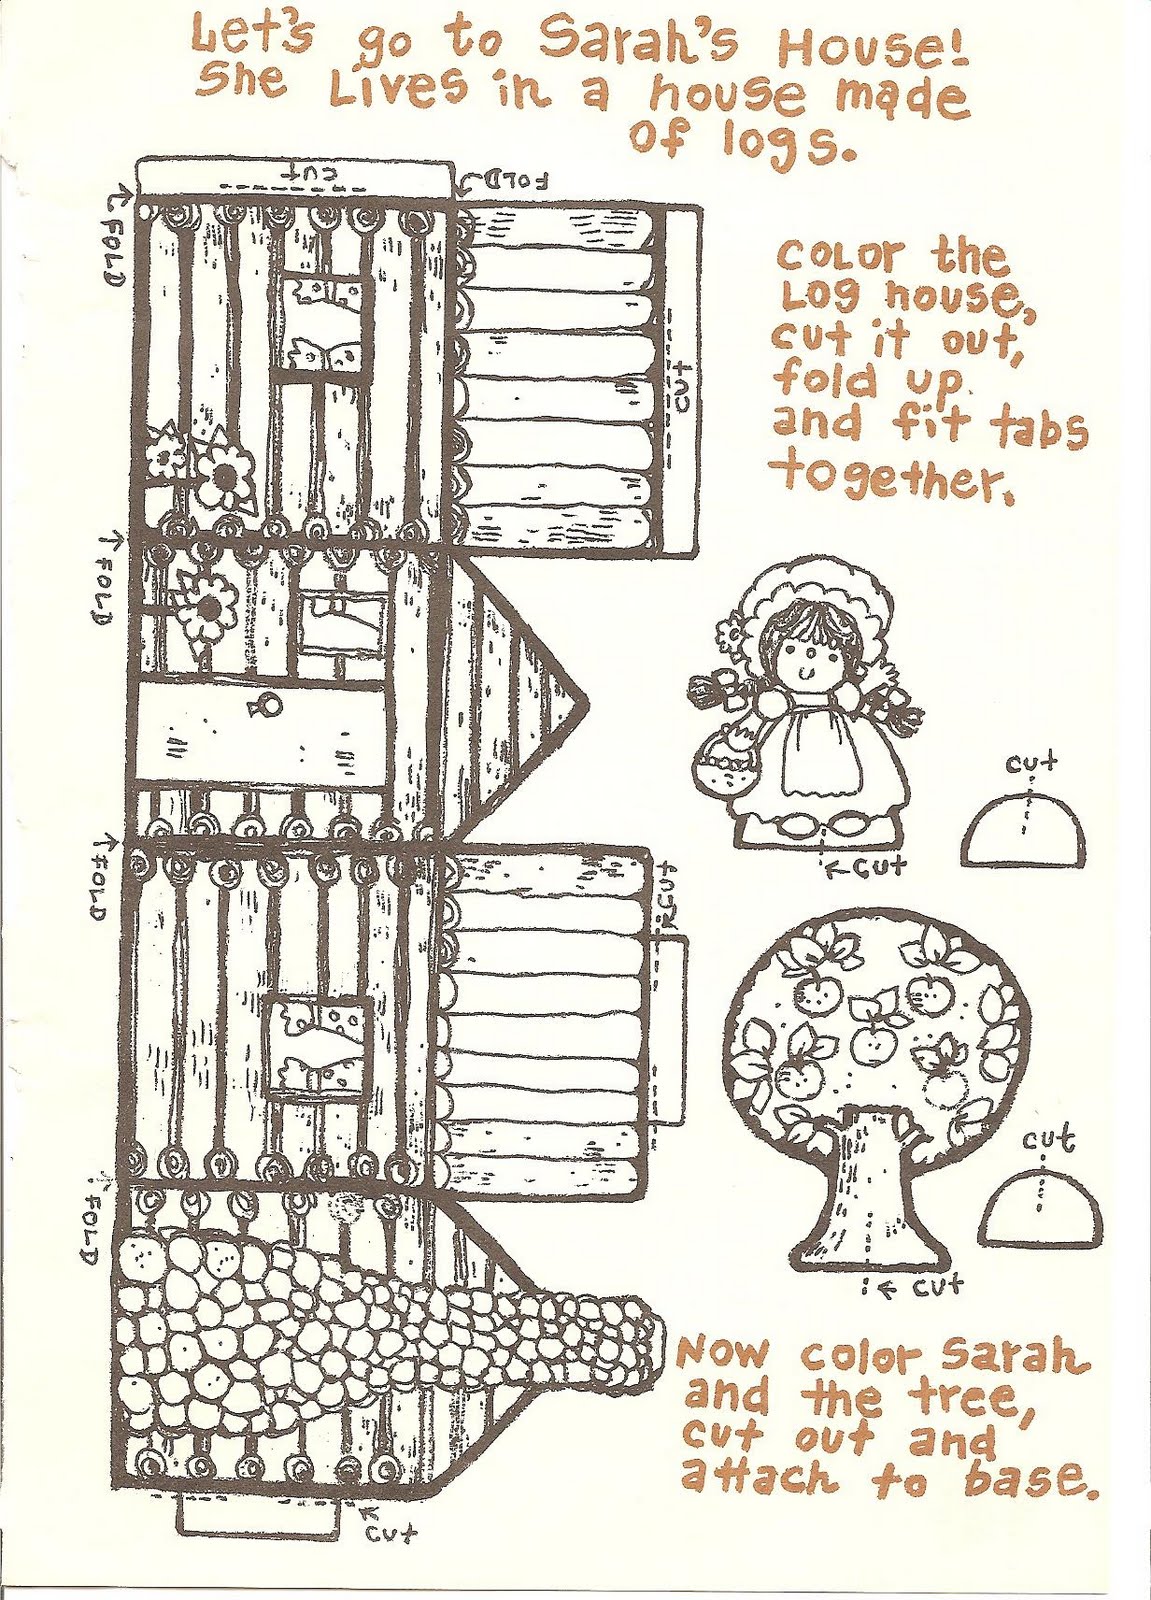 Let's go to Sarah's House!
She Lives in a house made
of logs.
CUT
FOLD
FOLD
CUT
COLOR the
LOG house,
cut it out,
fold up
and fit tabs
together.
FOLD
cut
CUT
FOLD
CUT
cut
FOLD
CUT
NOW color Sarah
and the tree,
cut out and
attach to base.
CUT